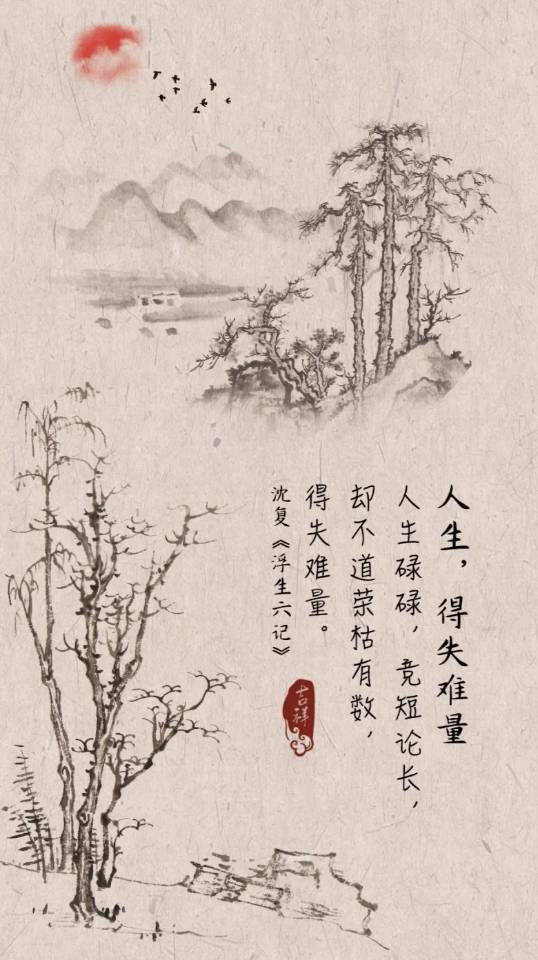 人生，得失难量
人生碌碌，竞短论长，
却不道荣枯有数，
得失难量。
沈复《浮生六记》
吉祥